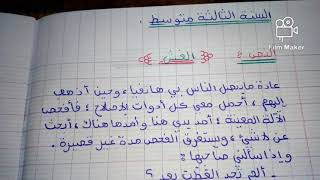 السنة الثالثة متوسط.
Film Maker
النص: الغش
عادة ما يتصل الناس بي هاتفيا، وحين أذهب
إليهم، أحمل معي كل أدوات الإصلاح؛ فأفحص
الآلة المعنية؛ أمد يدي هنا وأمدها هناك، أبحث
عن لا شيء، ويستغرق الفحص مدة غير قصيرة.
وإذا سألني صاحبها:
- ألم تجد العطب بعد؟